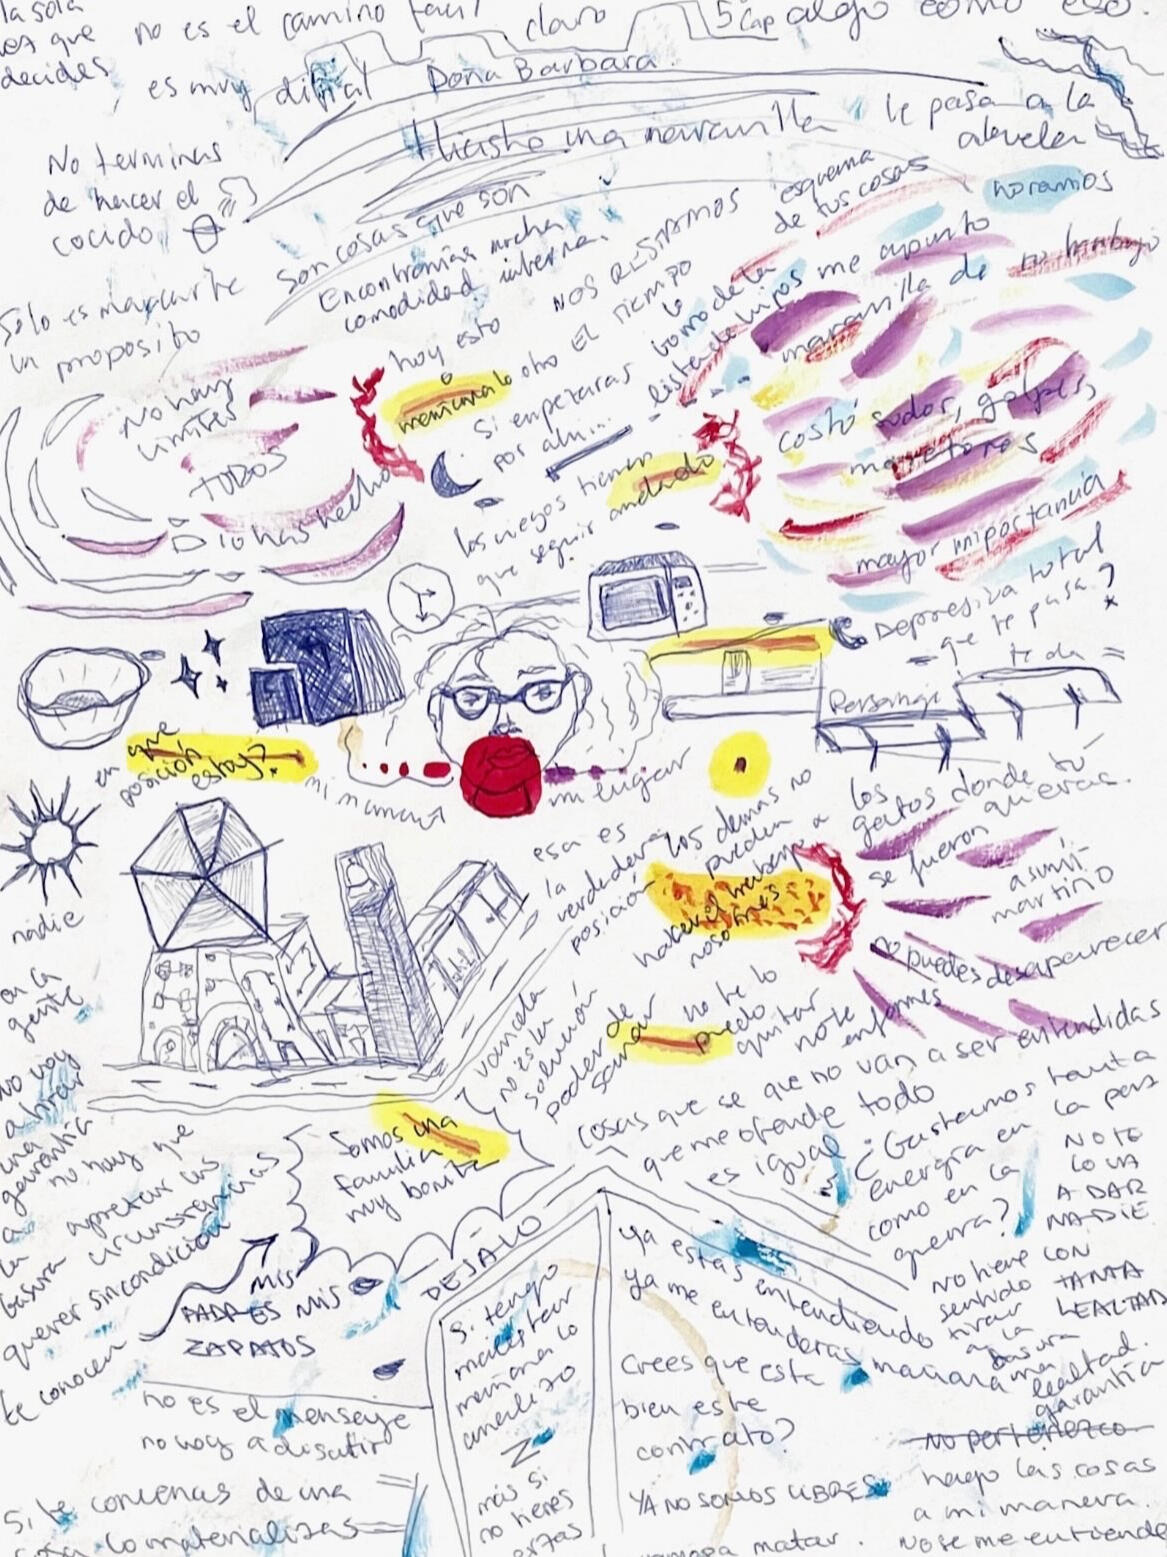 la sola
vez que
decides
no es el camino facil
es muy dificil
claro
5º cap
algo como eso.
Doña Barbara
Hiciste una maravilla
le pasa a la
abuela
No terminas
de hacer el
cocido
son cosas que son
Encontrarías mucha
comodidad interna.
Solo es marcarte
un proposito
NOS RESTAMOS
EL tiempo
esquema
de tus cosas
lista de hipos
me apunto
maravilla de
no trabajo
No hay
límites
TODOS
lo has hecho
hoy esto
otro
Si empezaras
por ahí...
los ciegos tienen
que seguir andando
costó sudor, golpes,
mayor importancia
Depresiva total
que te pasa?
te da
Personaje
en que
posición
estoy?
mi mamá
mi lugar
esa es
la
verdadera
posición
los demas no
pueden
hacer el trabajo a
nosotros
los
gatos donde tú
se fueron quieras.
asumí
martirio
No puedes desaparecer
nadie
en la
gente
no voy
a tirar
una
garantía
a
la
basura
no hay que
apretar las
circunstancias
querer sin condición
te conocen
no es la
solución
poder de
sanar
no te lo
puedo
quitar
no te
enformes
cosas que se que no van a ser entendidas
que me ofende todo
es igual
¿Gastamos tanta
energía en
la paz
como en la
guerra?
NO TE
LO VA
A DAR
NADIE
CON
TANTA
LEALTAD
no tiene
sentido
tirar
a la
basura
una
lealtad.
garantía
Somos una
familia
muy bonita
DEJALO
MIS
PADRES MIS
ZAPATOS
no es el mensaje
no voy a discutir
Si te convences de una
cosa lo materializas
Si tengo
malestar
mañana lo
analizo
más si
no tienes
Ya estas entendiendo
Ya me entenderas mañana
Crees que esta
bien este
contrato?
YA NO SOMOS LIBRES
matar.
No pertenezco
hago las cosas
a mi manera.
No se me entiende